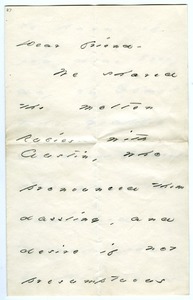 Dear Friend -
We shared
the molten
Rubies with
Austin, who
pronounced them
dazzling, and
desire is not
presumptuous